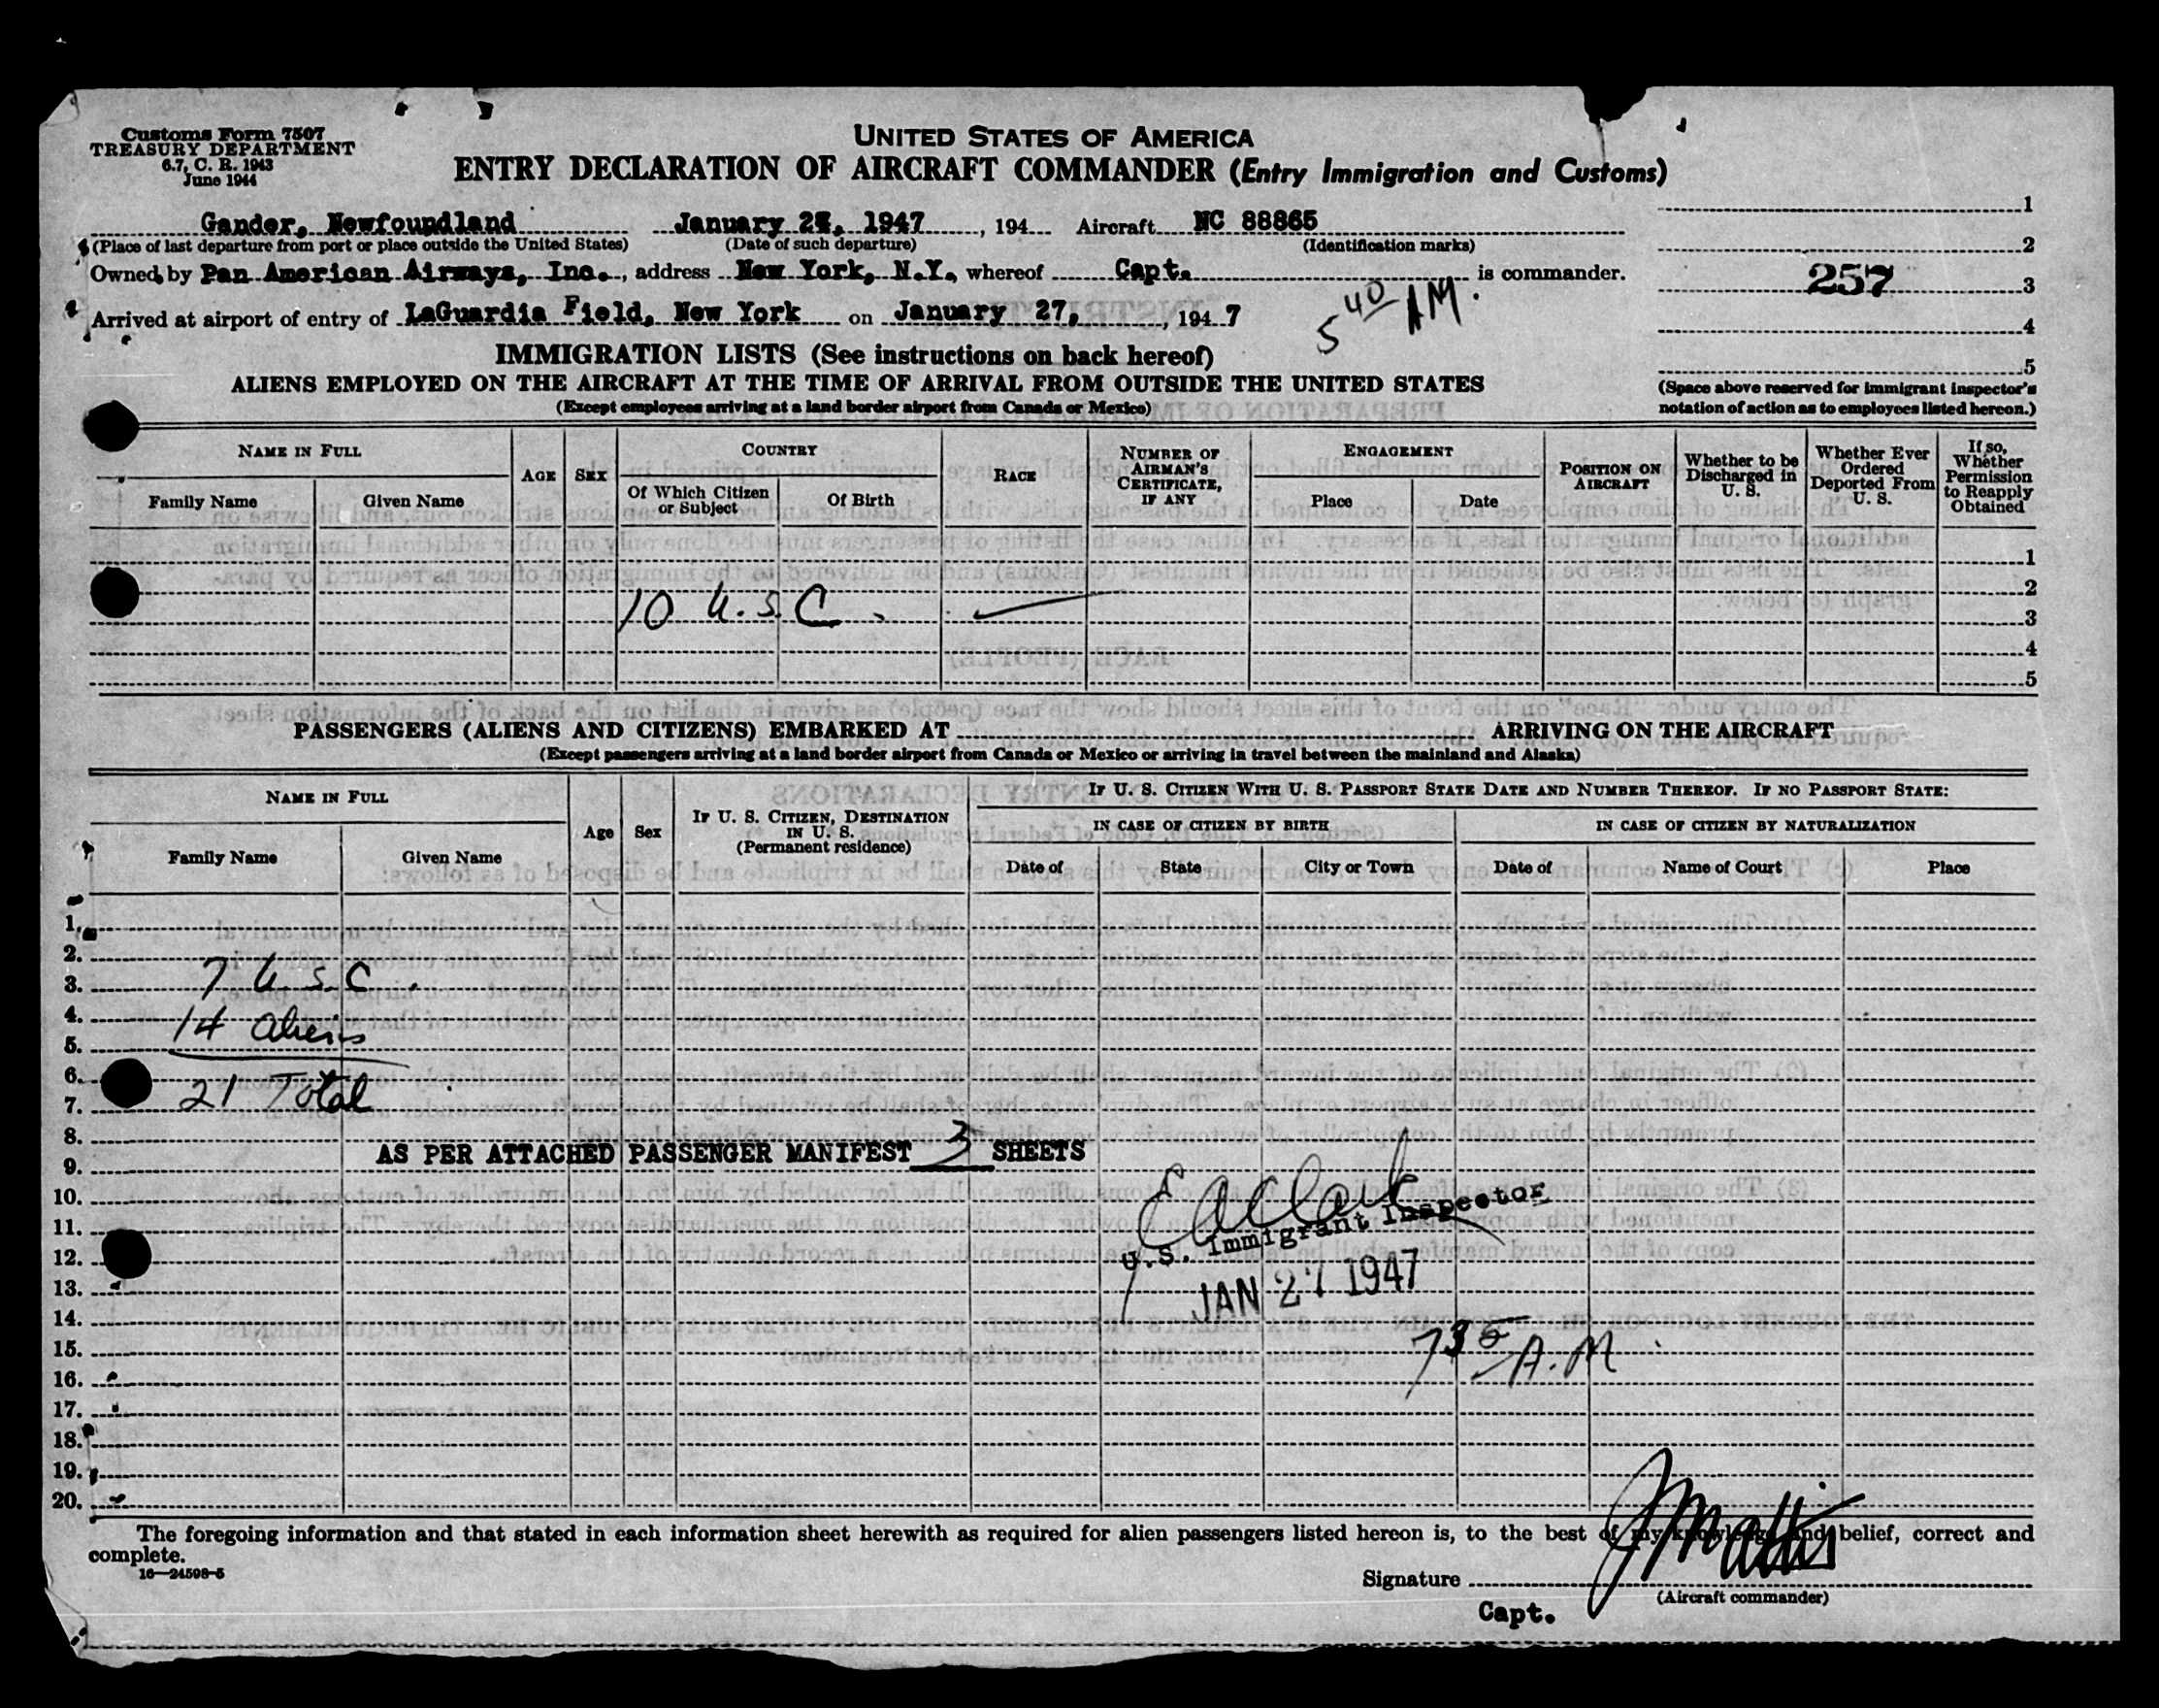 Customs Form 7507
TREASURY DEPARTMENT
6.7, C. R. 1943
June 1944
UNITED STATES OF AMERICA
ENTRY DECLARATION OF AIRCRAFT COMMANDER (Entry Immigration and Customs)
Gander, Newfoundland January 1947, 194 Aircraft NC 88865
(Place of last departure from port or place outside the United States) (Date of such departure) (Identification marks)
Owned by Pan American Airways, Inc., address New York, N.Y. whereof Capt. is commander.
Arrived at airport of entry of LaGuardia Field, New York on January 27, , 1947
5 40 AM.
1
2
257 3
4
5
(Space above reserved for immigrant inspector's
notation of action as to employees listed hereon.)
IMMIGRATION LISTS (See instructions on back hereof)
ALIENS EMPLOYED ON THE AIRCRAFT AT THE TIME OF ARRIVAL FROM OUTSIDE THE UNITED STATES
(Except employees arriving at a land border airport from Canada or Mexico)
NAME IN FULL
Family Name
Given Name
AGE
SEX
COUNTRY
Of Which Citizen
or Subject
Of Birth
RACE
NUMBER OF
AIRMAN'S
CERTIFICATE,
IF ANY
ENGAGEMENT
Place
Date
POSITION ON
AIRCRAFT
Whether to be
Discharged in
U. S.
Whether Ever
Ordered
Deported From
U. S.
If so,
Whether
Permission
to Reapply
Obtained
1
2
10 U.S.C. 3
4
5
PASSENGERS (ALIENS AND CITIZENS) EMBARKED AT ARRIVING ON THE AIRCRAFT
(Except passengers arriving at a land border airport from Canada or Mexico or arriving in travel between the mainland and Alaska)
NAME IN FULL
Family Name
Given Name
Age
Sex
IF U. S. CITIZEN, DESTINATION
IN U. S.
(Permanent residence)
IF U. S. CITIZEN WITH U. S. PASSPORT STATE DATE AND NUMBER THEREOF. IF NO PASSPORT STATE:
IN CASE OF CITIZEN BY BIRTH
IN CASE OF CITIZEN BY NATURALIZATION
Date of
State
City or Town
Date of
Name of Court
Place
1.
2.
3. 7 U.S.C.
4. 14 aliens
5.
6.
7. 21 Total
8.
AS PER ATTACHED PASSENGER MANIFEST 3 SHEETS
9.
10.
11. E A Clark
12. U.S. Immigrant Inspector
13. JAN 27 1947
14.
15. 7 35 A.M.
16.
17.
18.
19.
20.
The foregoing information and that stated in each information sheet herewith as required for alien passengers listed hereon is, to the best of my knowledge and belief, correct and
complete.
16—24598-5
Signature
(Aircraft commander)
Capt.